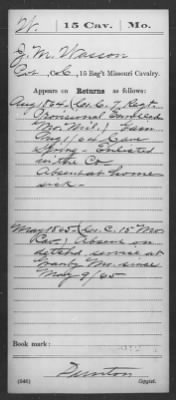 W. 15 Cav. Mo.
J. M. Wasson
, Co. C, 15 Reg't Missouri Cavalry.
Appears on Returns as follows:
Aug 1864, Co. C. 7 Regt.
Provisional Enrolled
Mo. Mil.)
Aug 1/64 Cave
Spring - Enlisted
in the Co
Absent at home
sick -
May 1865 (Co. C. 15" Mo
Cav) Absent on
detchd service at
Granby Mo. since
May 9/65
Book mark:
(546)
Copyist.